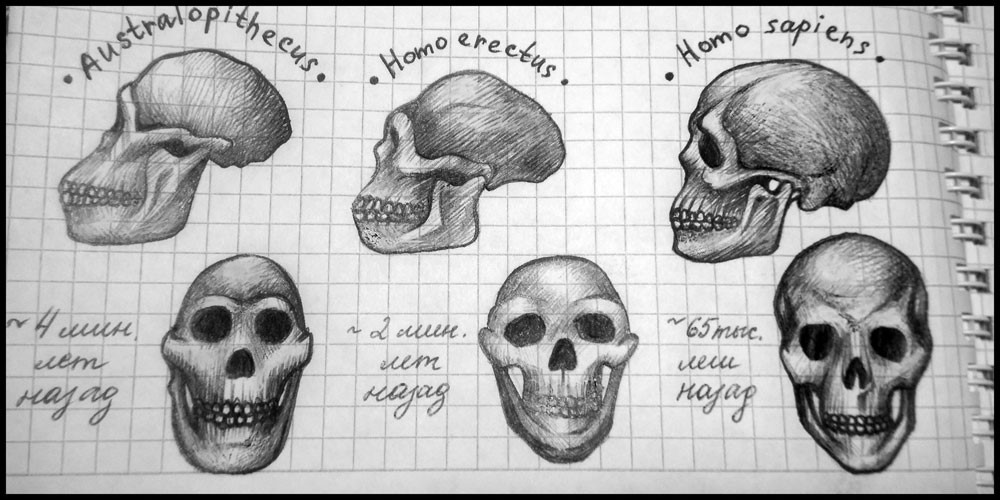 Australopithecus
Homo erectus
Homo sapiens
~ 4 млн.
лет
назад
~ 2 млн.
лет
назад
~ 65 тыс.
лет
назад